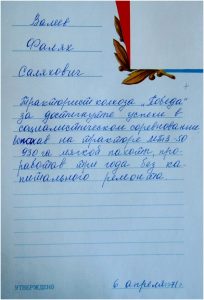 Валеев
Фалях
Саляхович
Тракторист колхоза „Победа"
за достигнутые успехи в
социалистическом соревновании
вспахав на тракторе МТЗ-50
930 га мягкой пахоты, про-
работав три года без ка-
питального ремонта.
УТВЕРЖДЕНО
6 апреля 71 г